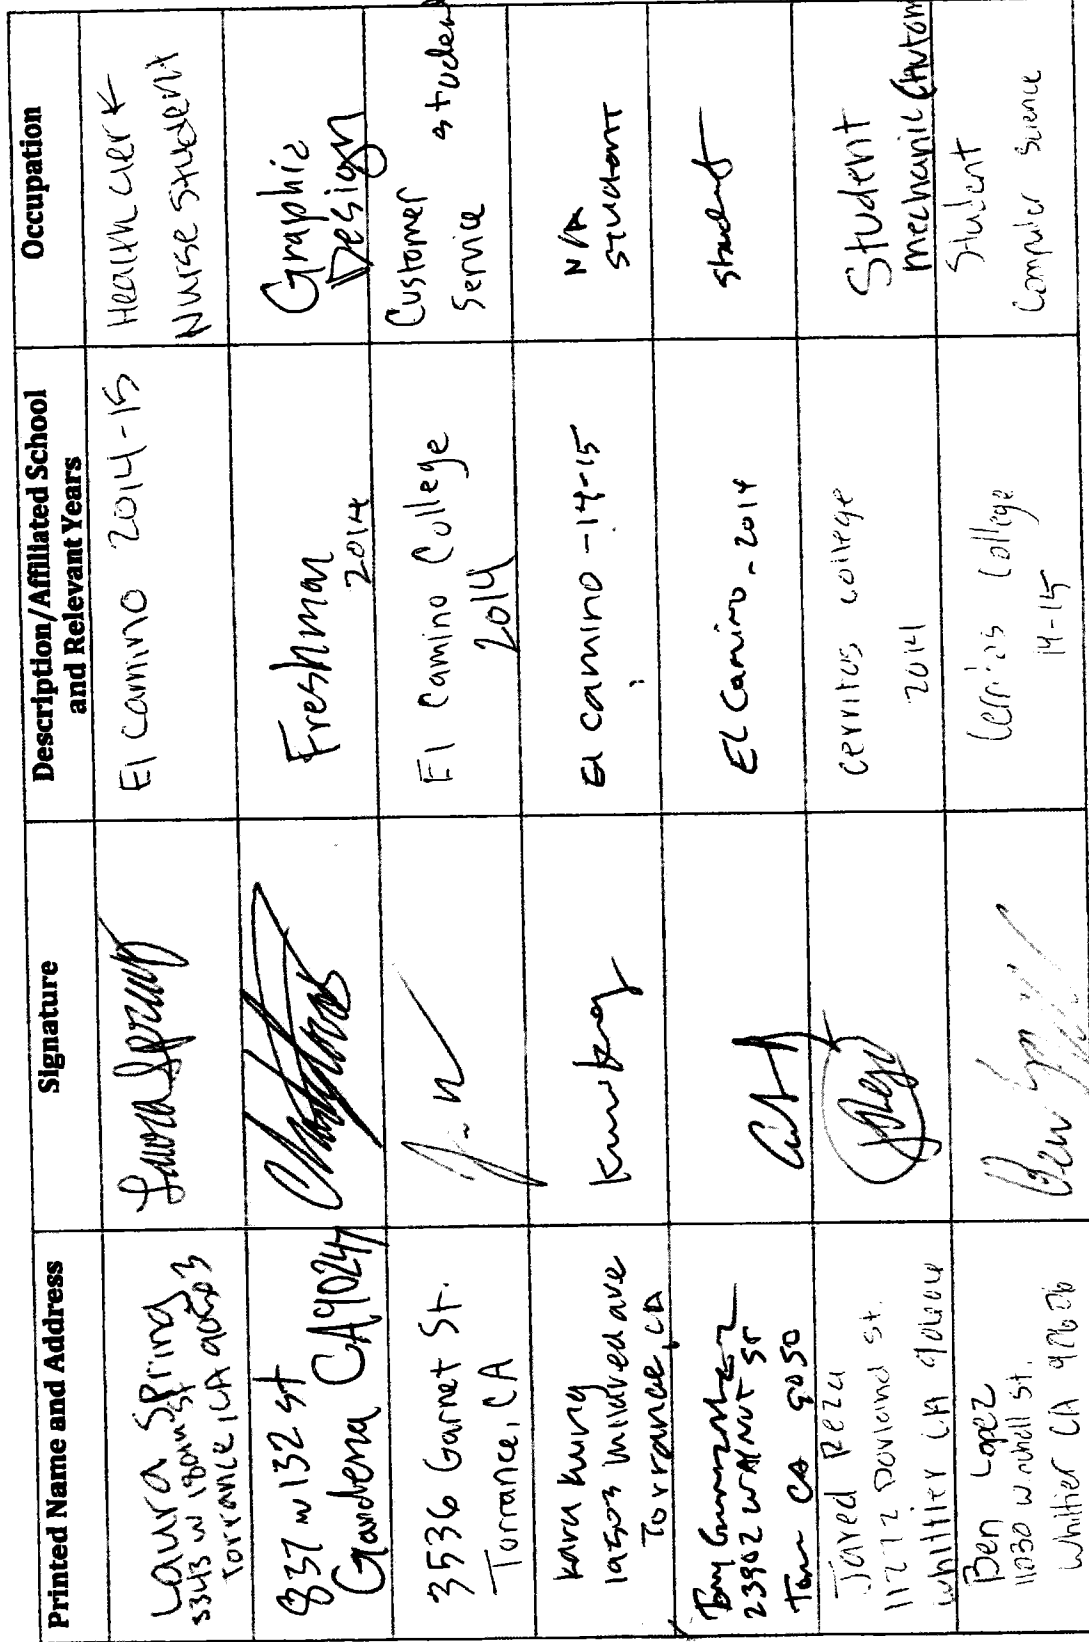 Printed Name and Address
Signature
Description/Affiliated School
and Relevant Years
Occupation
Laura Spring
3343 w 180th St
Torrance, CA 90503
Laura Spring
El camino 2014-15
Health clerk
Nurse Student
837 w 132 st
Gardena CA 90247
Freshman
2014
Graphic
Design
3536 Garnet St.
Torrance, CA
El Camino College
2014
Customer
Service
student
Kara Kung
19503 Mildred ave
Torrance, CA
El camino -14-15
N/A
Student
Tony
23902 WALNUT ST
CA 9050
El Camino - 2014
student
Jared
11272 st.
whittier CA
cerritos college
2014
Student
mechanic (Autom
Ben Lopez
11030 st.
Whittier CA
Ben
Cerritos College
14-15
Student
Computer Science